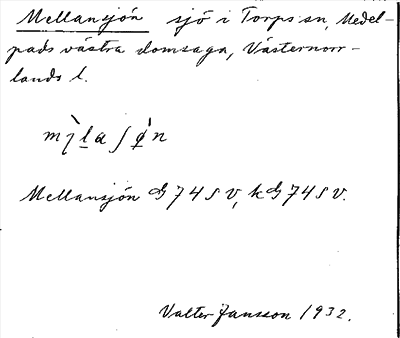 Mellansjön sjö i Torps sn, Medel-
pads västra domsaga, Västernorr-
lands l.
Mellansjön G 74 S V, kG 74 S V.
Valter Jansson 1932.